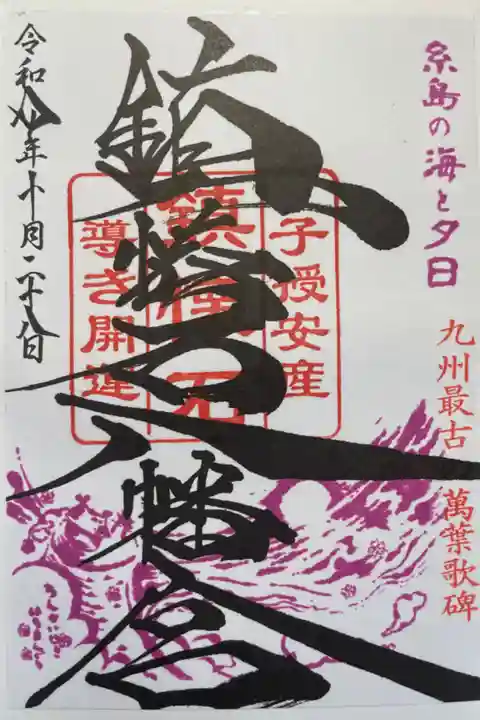 糸島の海と夕日
九州最古 萬葉歌碑
子授安産
鎮懐石
導き開運
鎮懐石八幡宮
令和八年十月二十八日